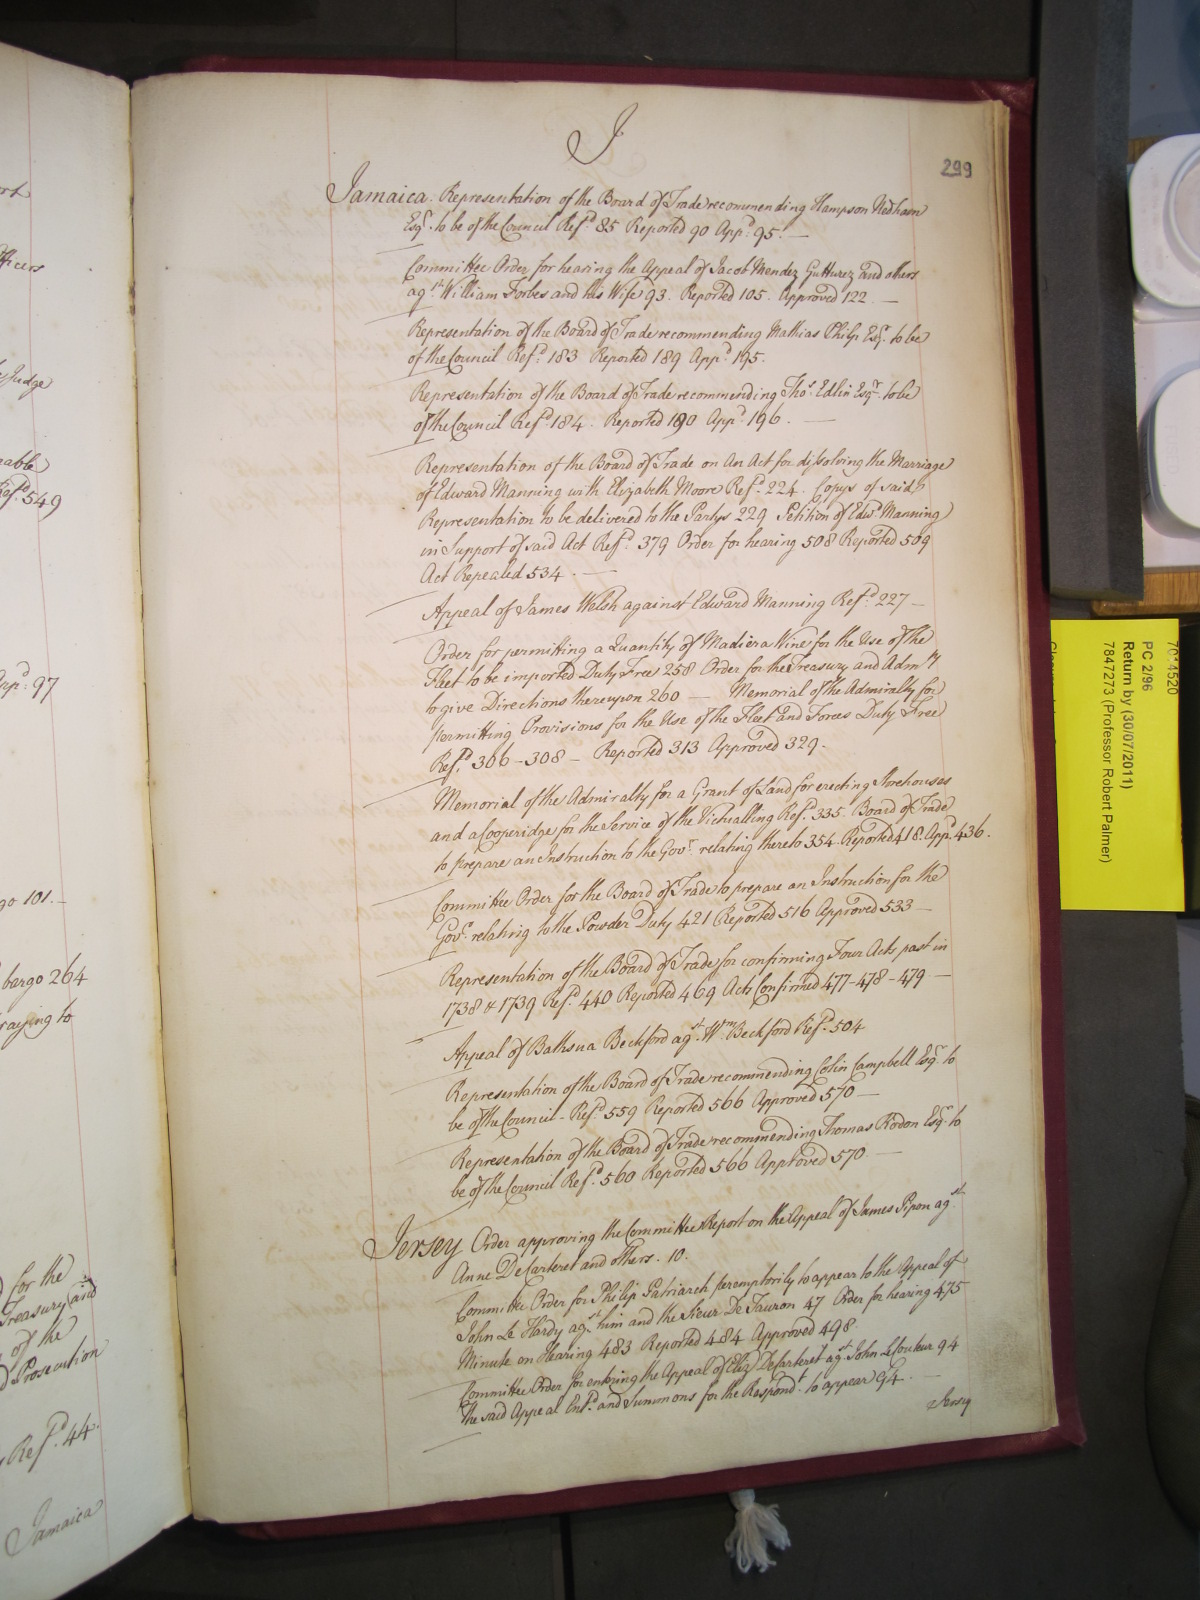 J
299
Jamaica. Representation of the Board of Trade recommending Hampson Nedham
Esqr. to be of the Council Refd. 85 Reported 90 Appd. 95. —
Committee Order for hearing the Appeal of Jacob Mendez Gutturez and others
agst. William Forbes and his Wife 93. Reported 105. Approved 122 —
Representation of the Board of Trade recommending Mathias Philp Esqr. to be
of the Council Refd. 183 Reported 189 Appd. 195.
Representation of the Board of Trade recommending Thos. Edlin Esqr. to be
of the Council Refd. 184. Reported 190 Appd. 196. —
Representation of the Board of Trade on An Act for dissolving the Marriage
of Edward Manning with Elizabeth Moore Refd. 224. Copys of said
Representation to be delivered to the Partys 229 Petition of Edwd. Manning
in Support of said Act Refd. 379 Order for hearing 508 Reported 509
Act Repealed 534. —
Appeal of James Welsh against Edward Manning Refd. 227 —
Order for permitting a Quantity of Madiera Wine for the Use of the
Fleet to be imported Duty Free 258 Order for the Treasury and Admty
to give Directions thereupon 260 — Memorial of the Admiralty for
permitting Provisions for the Use of the Fleet and Forces Duty Free
Refd. 306 - 308 — Reported 313 Approved 329.
Memorial of the Admiralty for a Grant of Land for erecting Storehouses
and a Cooperidge for the Service of the Victualling Refd. 335. Board of Trade
to prepare an Instruction to the Govr. relating thereto 354 Reported 418. Appd. 436.
Committee Order for the Board of Trade to prepare an Instruction for the
Govr. relating to the Powder Duty 421 Reported 516 Approved 533 —
Representation of the Board of Trade for confirming Four Acts past in
1738 & 1739 Refd. 440 Reported 469 Acts Confirmed 477 - 478 - 479 —
Appeal of Bathsua Beckford agst. Wm. Beckford Refd. 504
Representation of the Board of Trade recommending Colin Campbell Esqr. to
be of the Council - Refd. 559 Reported 566 Approved 570 —
Representation of the Board of Trade recommending Thomas Rodon Esqr. to
be of the Council Refd. 560 Reported 566 Approved 570 —
Jersey Order approving the Committee Report on the Appeal of James Pipon agst.
Anne DeCarteret and others. 10.
Committee Order for Philip Patriarch peremptorily to appear to the Appeal of
John Le Hardy agst. him and the Sieur De Tauron 47 Order for hearing 475
Minute on Hearing 483 Reported 484 Approved 498
Committee Order for entering the Appeal of Eliz. DeCarteret agst. John LeCouteur 94
The said Appeal Entd. and Summons for the Respondt. to appear 94. —
Jersey
fficers
Judge
Refd. 549
Appd. 97
go 101. —
bargo 264
raying to
for the
Treasury and
of the
Prosecution
Refd. 44.
Jamaica
PC 2/96
Return by (30/07/2011)
7847273 (Professor Robert Palmer)